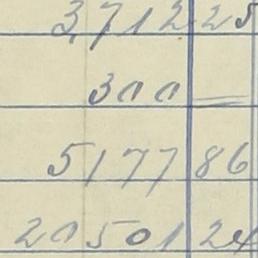 3,712 25
300 —
5177 86
20501 24